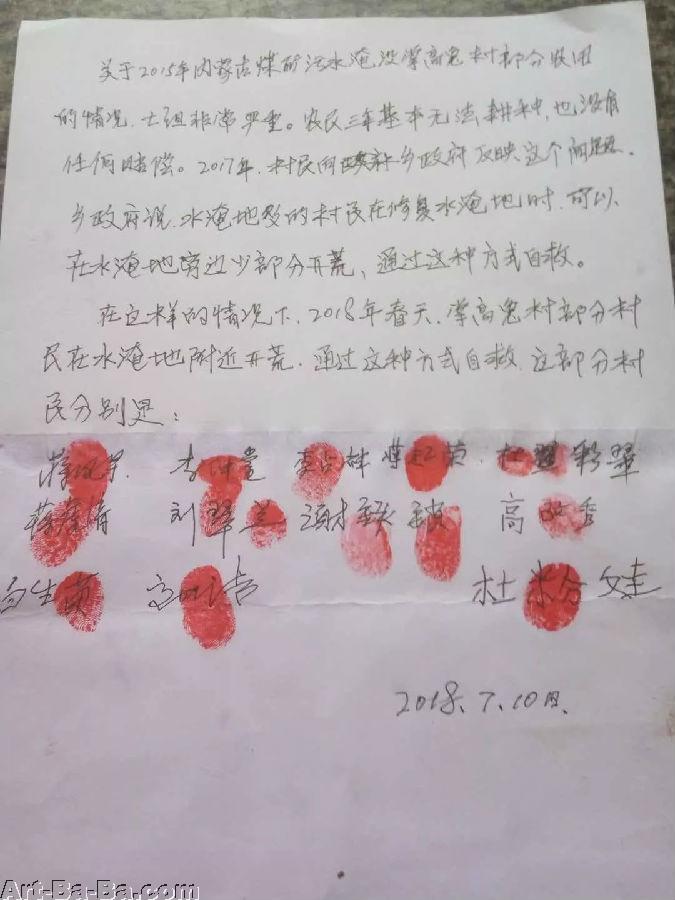 关于2015年内蒙古煤矿污水淹没掌高兔村部分农田
的情况,七组非常严重。农民三年基本无法耕种,也没有
任何赔偿。2017年,村民向乡政府反映这个问题。
乡政府说,水淹地段的村民在修复水淹地时,可以
在水淹地旁边少部分开荒,通过这种方式自救。
在这样的情况下,2018年春天,掌高兔村部分村
民在水淹地附近开荒,通过这种方式自救,这部分村
民分别是:
刘翠兰 高
杜粉娃
2018.7.10日.
Art-Ba-Ba.com